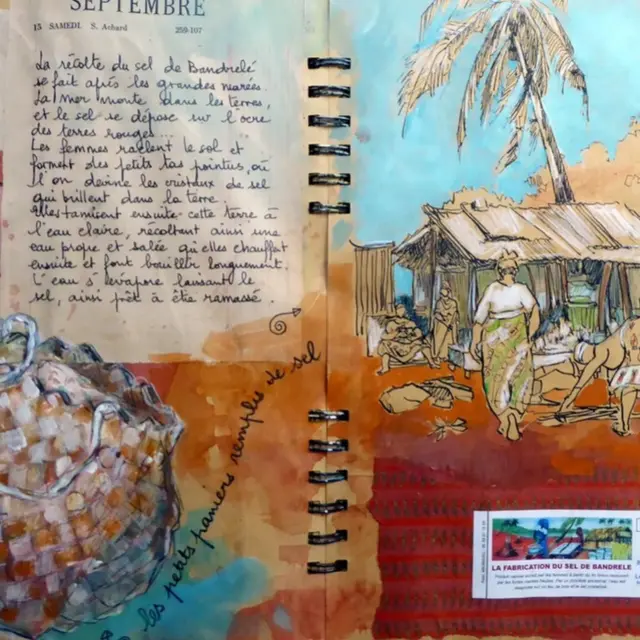 SEPTEMBRE
15 SAMEDI. S. Achard 259-107
La récolte du sel de Bandrelé
se fait après les grandes marées.
La mer monte dans les terres,
et le sel se dépose sur l'ocre
des terres rouges...
Les femmes raclent le sol et
forment des petits tas pointus, où
l'on devine les cristaux de sel
qui brillent dans la terre.
Elles tamisent ensuite cette terre à
l'eau claire, récoltant ainsi une
eau propre et salée qu'elles chauffent
ensuite et font bouillir longuement.
L'eau s'évapore laissant le
sel, ainsi prêt à être ramassé.
les petits paniers remplis de sel
LA FABRICATION DU SEL DE BANDRELE